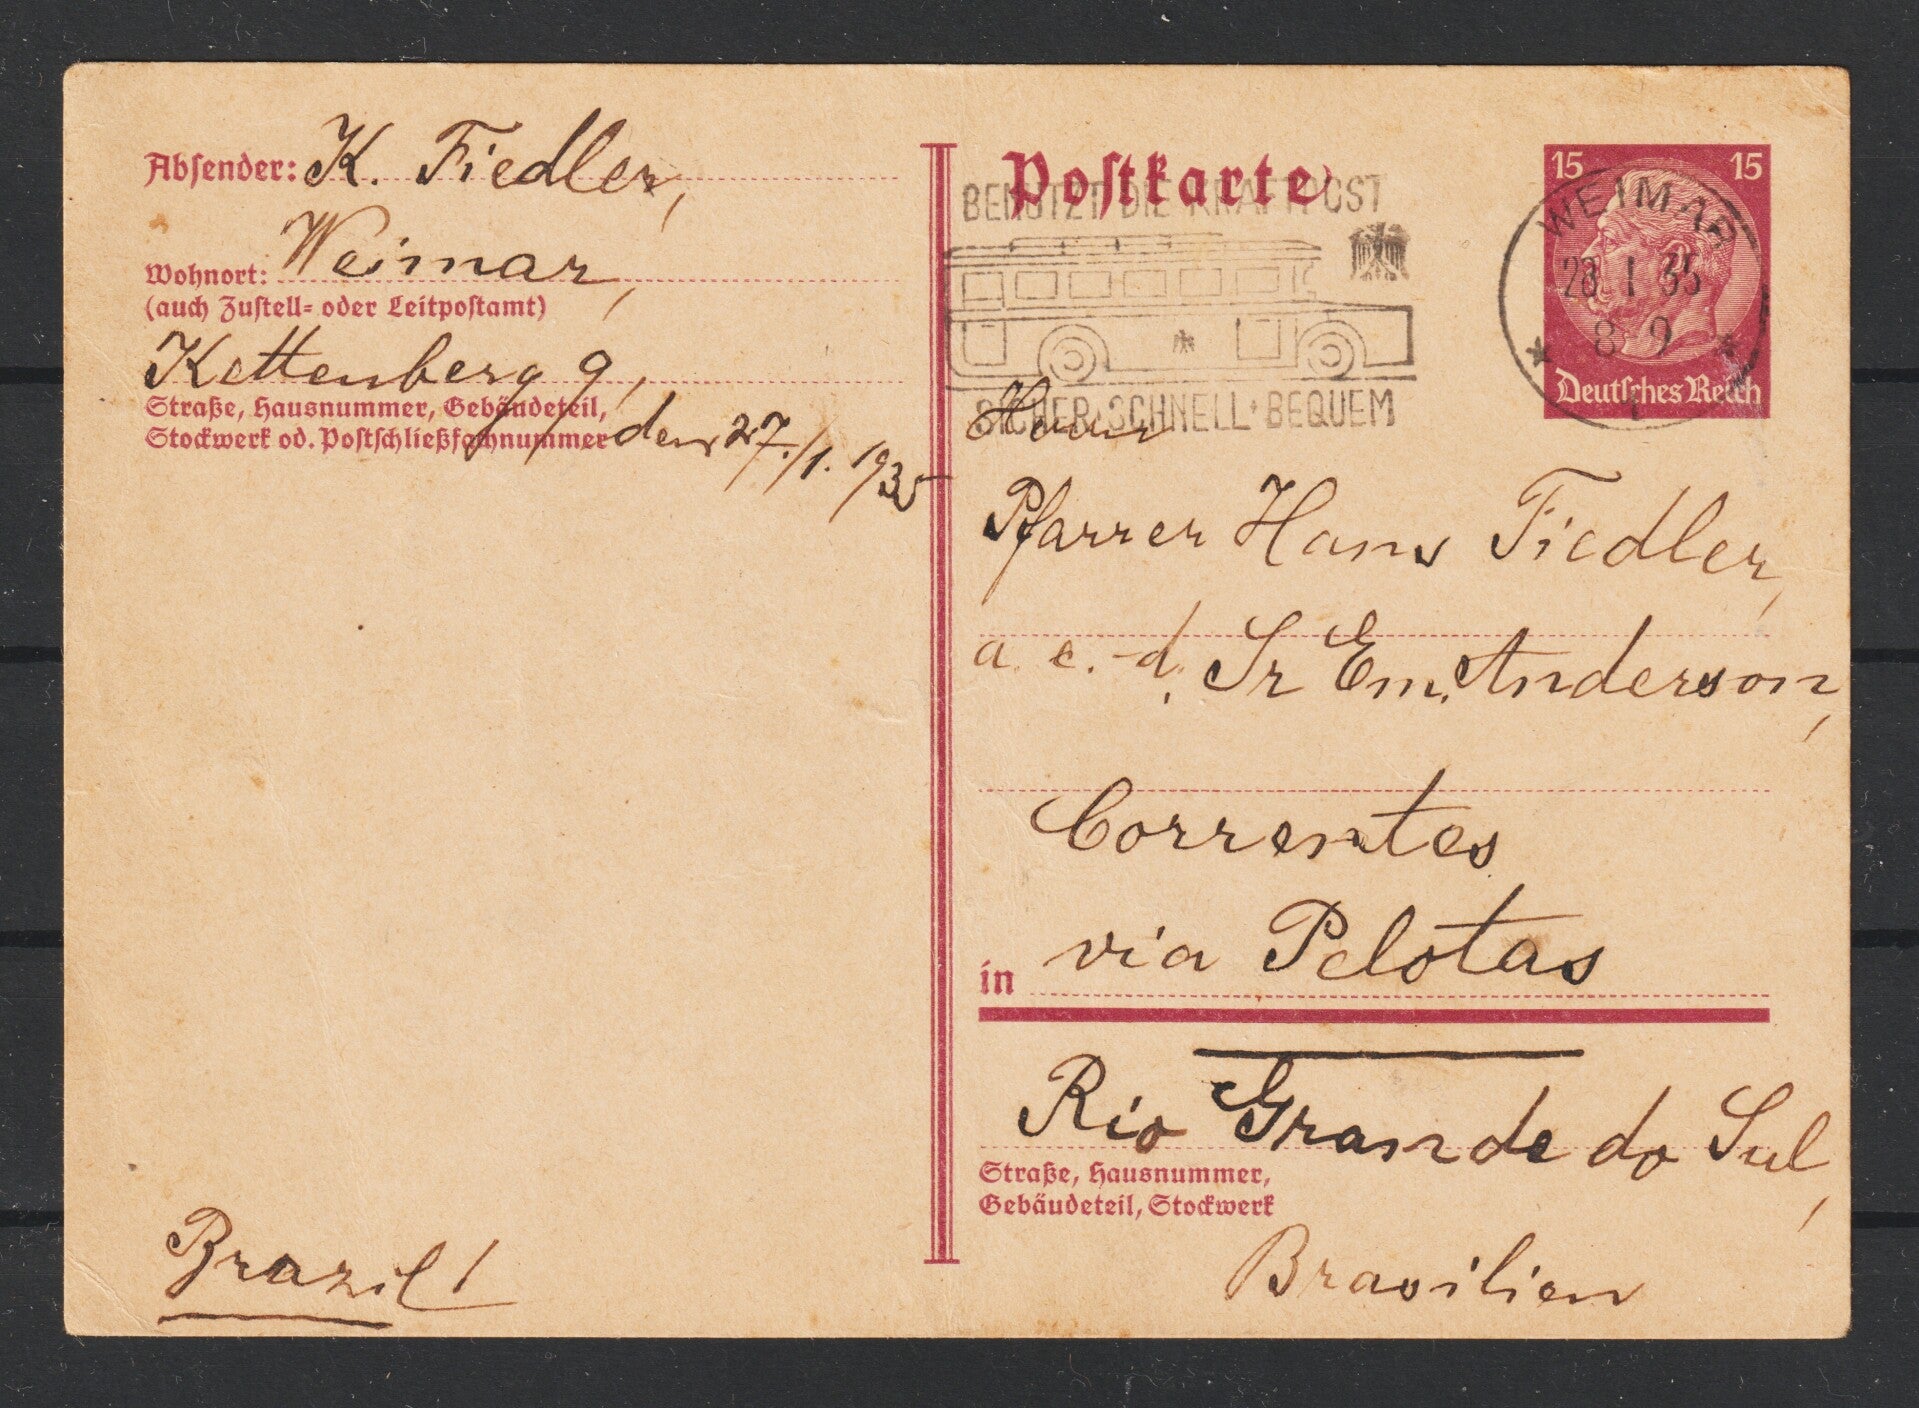 Absender: K. Fiedler,
Wohnort: Weimar,
(auch Zustell- oder Leitpostamt)
Kettenberg 9,
Straße, Hausnummer, Gebäudeteil,
Stockwerk od. Postschließfachnummer
den 27./1. 1935
Brazil!
Postkarte
BENUTZT DIE KRAFTPOST
SICHER·SCHNELL·BEQUEM
15 15
Deutsches Reich
WEIMAR
1 35
8 9
1
Herrn
Pfarrer Hans Fiedler,
a. c. d. Sr Em. Anderson,
Correntes
in via Pelotas
Rio Grande do Sul,
Straße, Hausnummer,
Gebäudeteil, Stockwerk
Brasilien